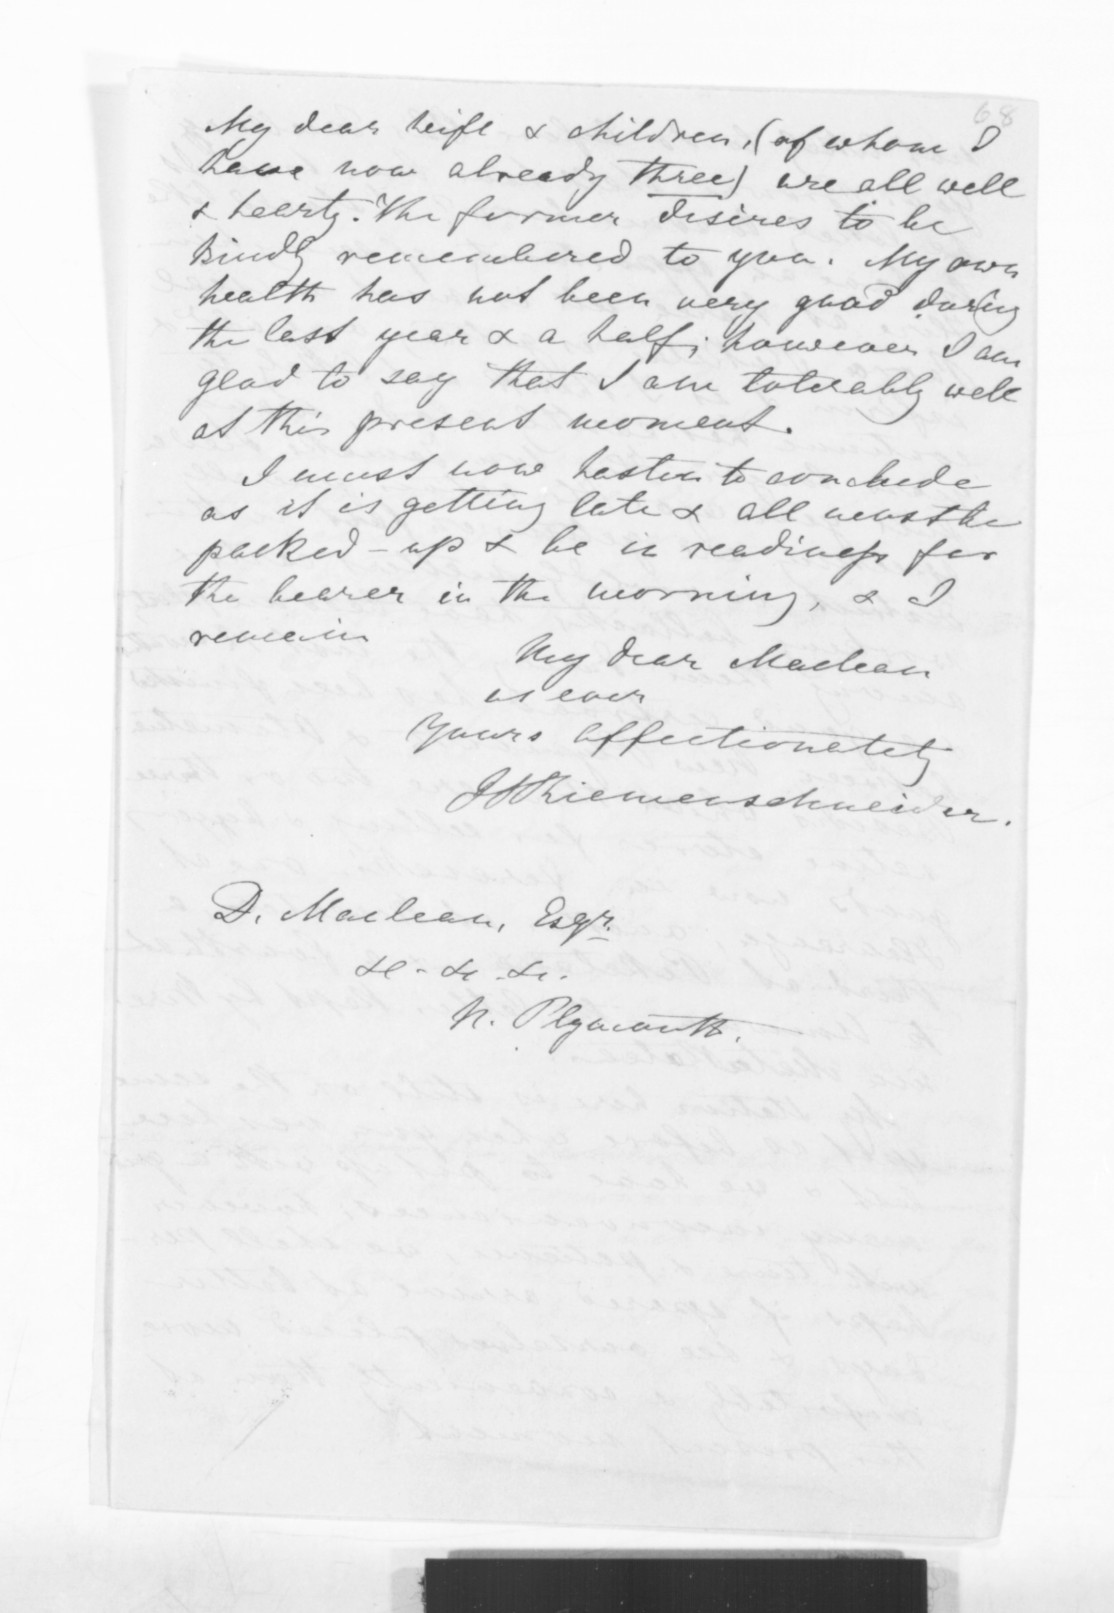 68
My dear wife & children, (of whom I
have now already three) are all well
& hearty. The former desires to be
kindly remembered to you. My own
health has not been very good during
the last year & a half; however I am
glad to say that I am tolerably well
at this present moment.
I must now hasten to conclude
as it is getting late & all must be
packed-up & be in readiness for
the bearer in the morning, & I
remain
My dear Maclean
as ever
Yours affectionately
Riemenschneider.
D. Maclean, Esqr.
&c. &c. &c.
N. Plymouth.